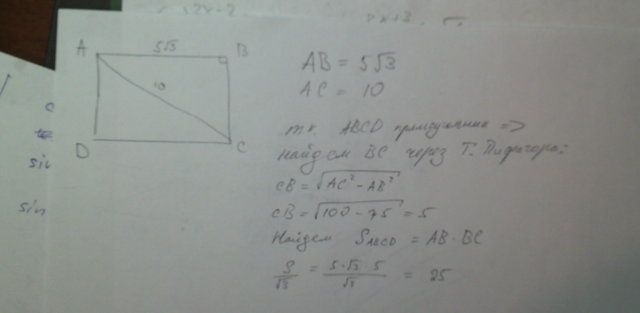 A 5√3 B
10
D C
AB = 5√3
AC = 10
т.к. ABCD прямоугольник =>
найдем BC через Т. Пифагора:
CB = √AC² - AB²
CB = √100 - 75 = 5
Найдем S ABCD = AB · BC
S/√3 = 5·√3·5/√3 = 25
sin
sin